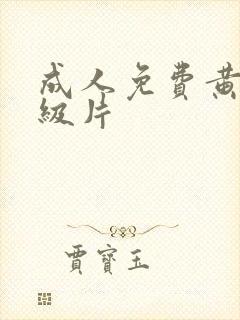 成人免費黃
級片
賈寶玉